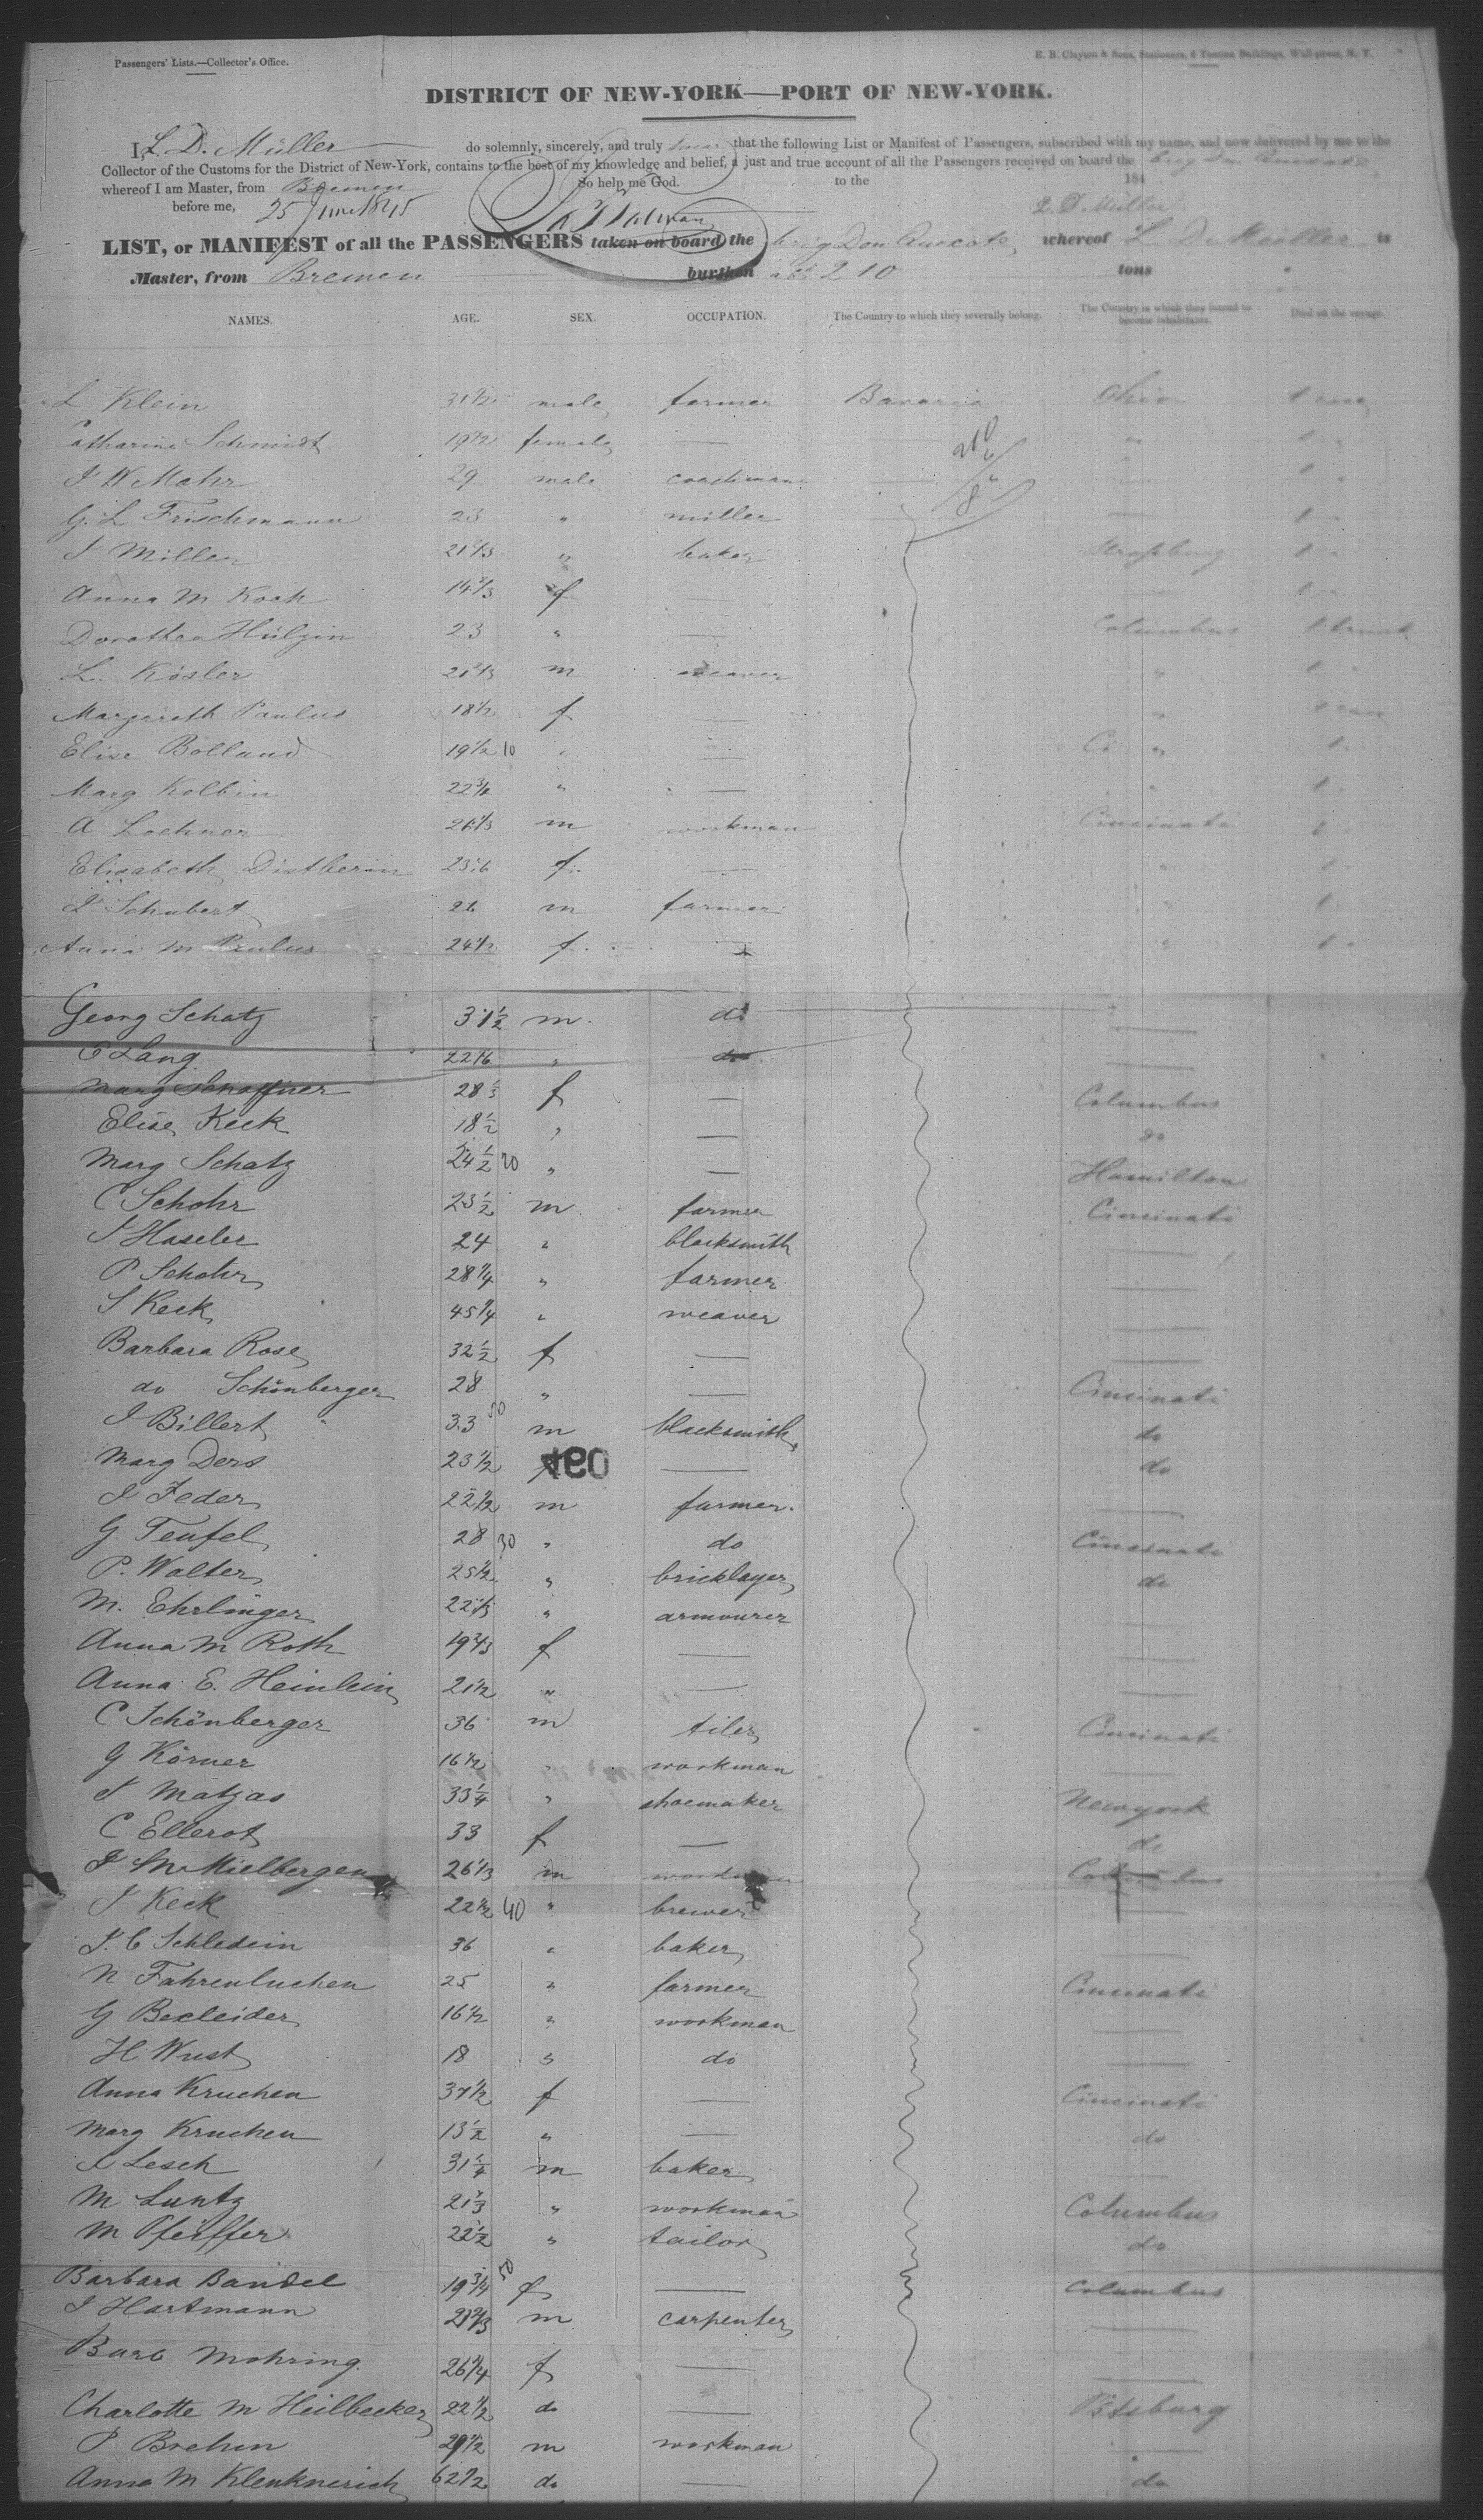 Passengers' Lists.—Collector's Office.
E. B. Clayton & Sons, Stationers, 6 Tontine Buildings, Wall-street, N. Y.
DISTRICT OF NEW-YORK—PORT OF NEW-YORK.
I, L. D. Müller do solemnly, sincerely, and truly swear that the following List or Manifest of Passengers, subscribed with my name, and now delivered by me to the
Collector of the Customs for the District of New-York, contains to the best of my knowledge and belief, a just and true account of all the Passengers received on board the brig Don Quixote
whereof I am Master, from Bremen So help me God. to the 184
before me, 25 June 1845 L. D. Müller
LIST, or MANIFEST of all the PASSENGERS taken on board the brig Don Quixote whereof L. D. Müller is
Master, from Bremen burthen abt 210 tons
NAMES. AGE. SEX. OCCUPATION. The Country to which they severally belong. The Country in which they intend to become inhabitants. Died on the voyage.
L Klein 31 1/2 male farmer Bavaria Ohio
Catharine Schmidt 19 1/2 female —
J W Mahr 29 male coachman
G. L Frischmann 23 " miller
J Miller 21 1/3 " baker Strasburg
Anna M Koch 14 2/3 f —
Dorothea Hülzin 23 " — Columbus 1 trunk
L. Kösler 21 2/3 m weaver "
Margareth Paulus 18 1/2 f — "
Elise Bolland 19 1/2 10 " —
Marg Kolbin 22 3/4 " —
A Lochner 26 1/3 m workman Cincinati
Elisabeth Distherin 23 f — "
J Schubert 26 m farmer "
Anna M Paulus 24 1/2 f. "
Georg Schatz 31 1/2 m. do
C Lang 22 " do
Marg Schaffner 28 1/3 f — Columbus
Elise Keck 18 1/2 " — do
Marg Schatz 24 1/2 20 " — Hamilton
C Schohr 23 1/2 m farmer Cincinati
J Haseler 24 " blacksmith —
P Schohr 28 1/4 " farmer —
J Keck 45 1/4 " weaver —
Barbara Rose 32 1/2 f — —
do Schönberger 28 " — Cincinati
J Billert 33 m blacksmith do
Marg Ders 23 1/2 f — do
J Feder 22 1/2 m farmer. —
G Teufel 28 30 " do Cincinati
P. Walter 25 1/2 " bricklayer do
M. Ehrlinger 22 1/3 " armourer —
Anna M Roth 19 2/3 f — —
Anna E. Heinlein 21 1/2 " — —
C Schönberger 36 m tiler Cincinati
G Körner 16 1/2 " workman —
J Matzas 33 1/4 " shoemaker Newyork
C Ellerot 33 f — do
J M Mielbergen 26 1/3 m workman Columbus
J Keck 22 1/2 40 " brewer —
J. C Schledein 36 " baker —
N Fahrenluchen 25 " farmer Cincinati
G Bexleider 16 1/2 " workman —
H Wust 18 " do —
Anna Kruchen 37 1/2 f — Cincinati
Marg Kruchen 13 1/2 " — do
J Lesch 31 1/4 m baker —
M Luntz 21 1/3 " workman Columbus
M Pfeiffer 22 1/2 " tailor do
Barbara Bandel 19 3/4 50 f — Columbus
J Hartmann 21 2/3 m carpenter —
Barb Mohring 26 1/4 f — —
Charlotte M Heilbecker 22 1/2 do — Pitsburg
P Brehm 29 1/2 m workman —
Anna M Klenknerich 62 1/2 do — do